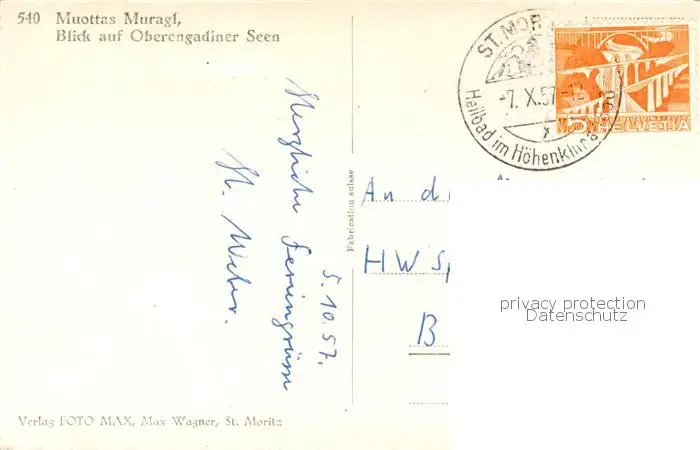 540 Muottas Muragl,
Blick auf Oberengadiner Seen
ST. MOR
-7. X. 57 -12
Heilbad im Höhenklima
5 HELVETIA
5. 10. 57.
Herzliche Feriengrüsse
St. Weber.
Fabrication suisse
An d
HW Sp
B
privacy protection
Datenschutz
Verlag FOTO MAX, Max Wagner, St. Moritz